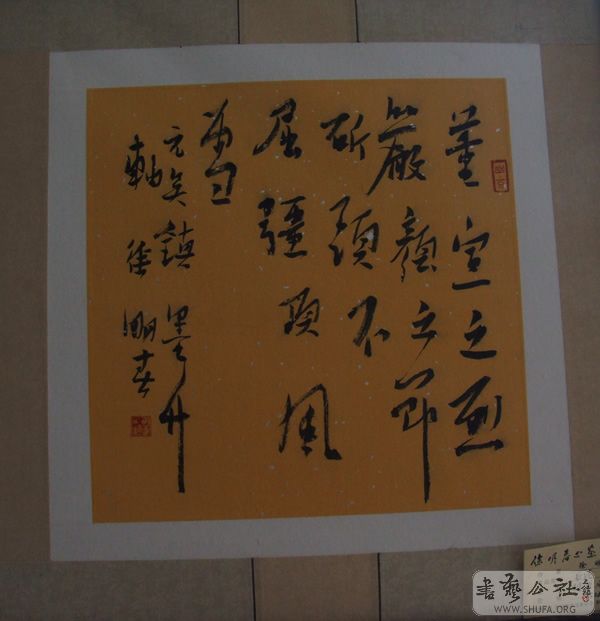 董宣之烈
嚴顏之節
斫頭不
屈彊項風
雪
元吳鎮墨竹
軸 徐明春
徐明春
書藝公社
WWW.SHUFA.ORG